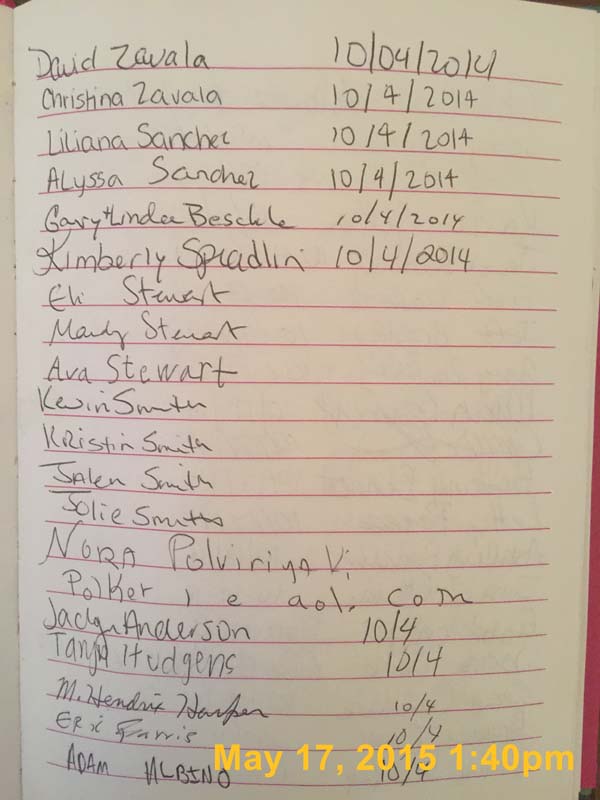 David Zavala 10/04/2014
Christina Zavala 10/4/2014
Liliana Sanchez 10/4/2014
ALyssa Sanchez 10/4/2014
Gary + Linda Beschle 10/4/2014
Kimberly Spradlin 10/4/2014
Eli Stewart
Mandy Stewart
Ava Stewart
Kevin Smith
Kristin Smith
Jalen Smith
Jolie Smith
NORA
aol. com
Jaclyn Anderson 10/4
Tanya Hudgens 10/4
M. Hendrix Harper 10/4
Eric 10/4
ADAM ALBINO 10/4
May 17, 2015 1:40pm